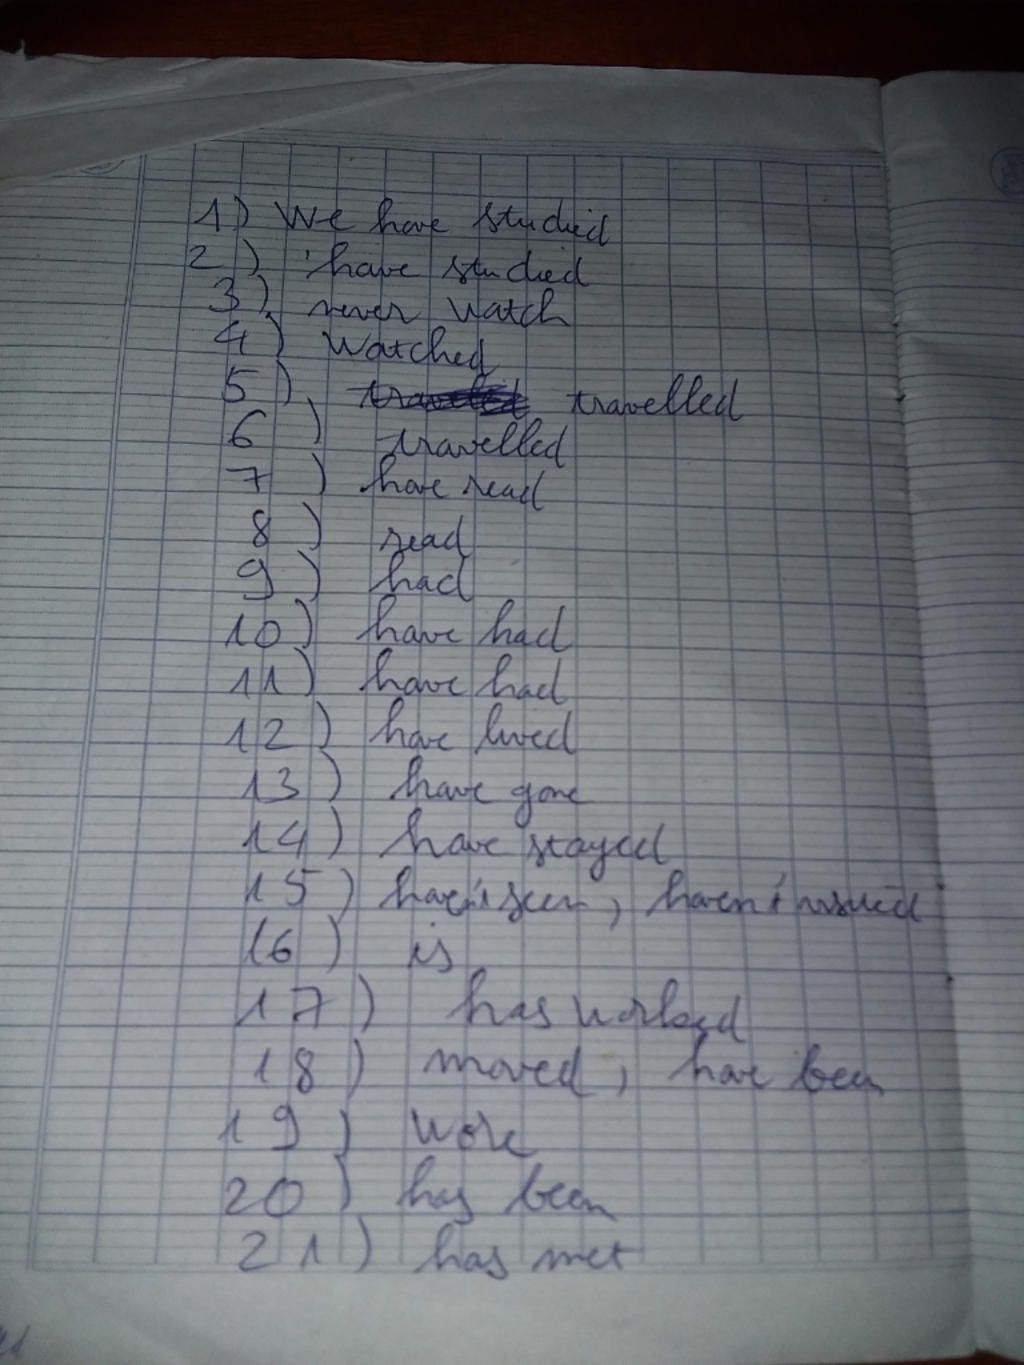 1) We have studied
2) have studied
3) never watch
4) Watched
5) travelled
6) travelled
7) have read
8) read
9) had
10) have had
11) have had
12) have lived
13) have gone
14) have stayed
15) haven't seen, haven't
16) is
17) has worked
18) moved, have been
19) wore
20) has been
21) has met